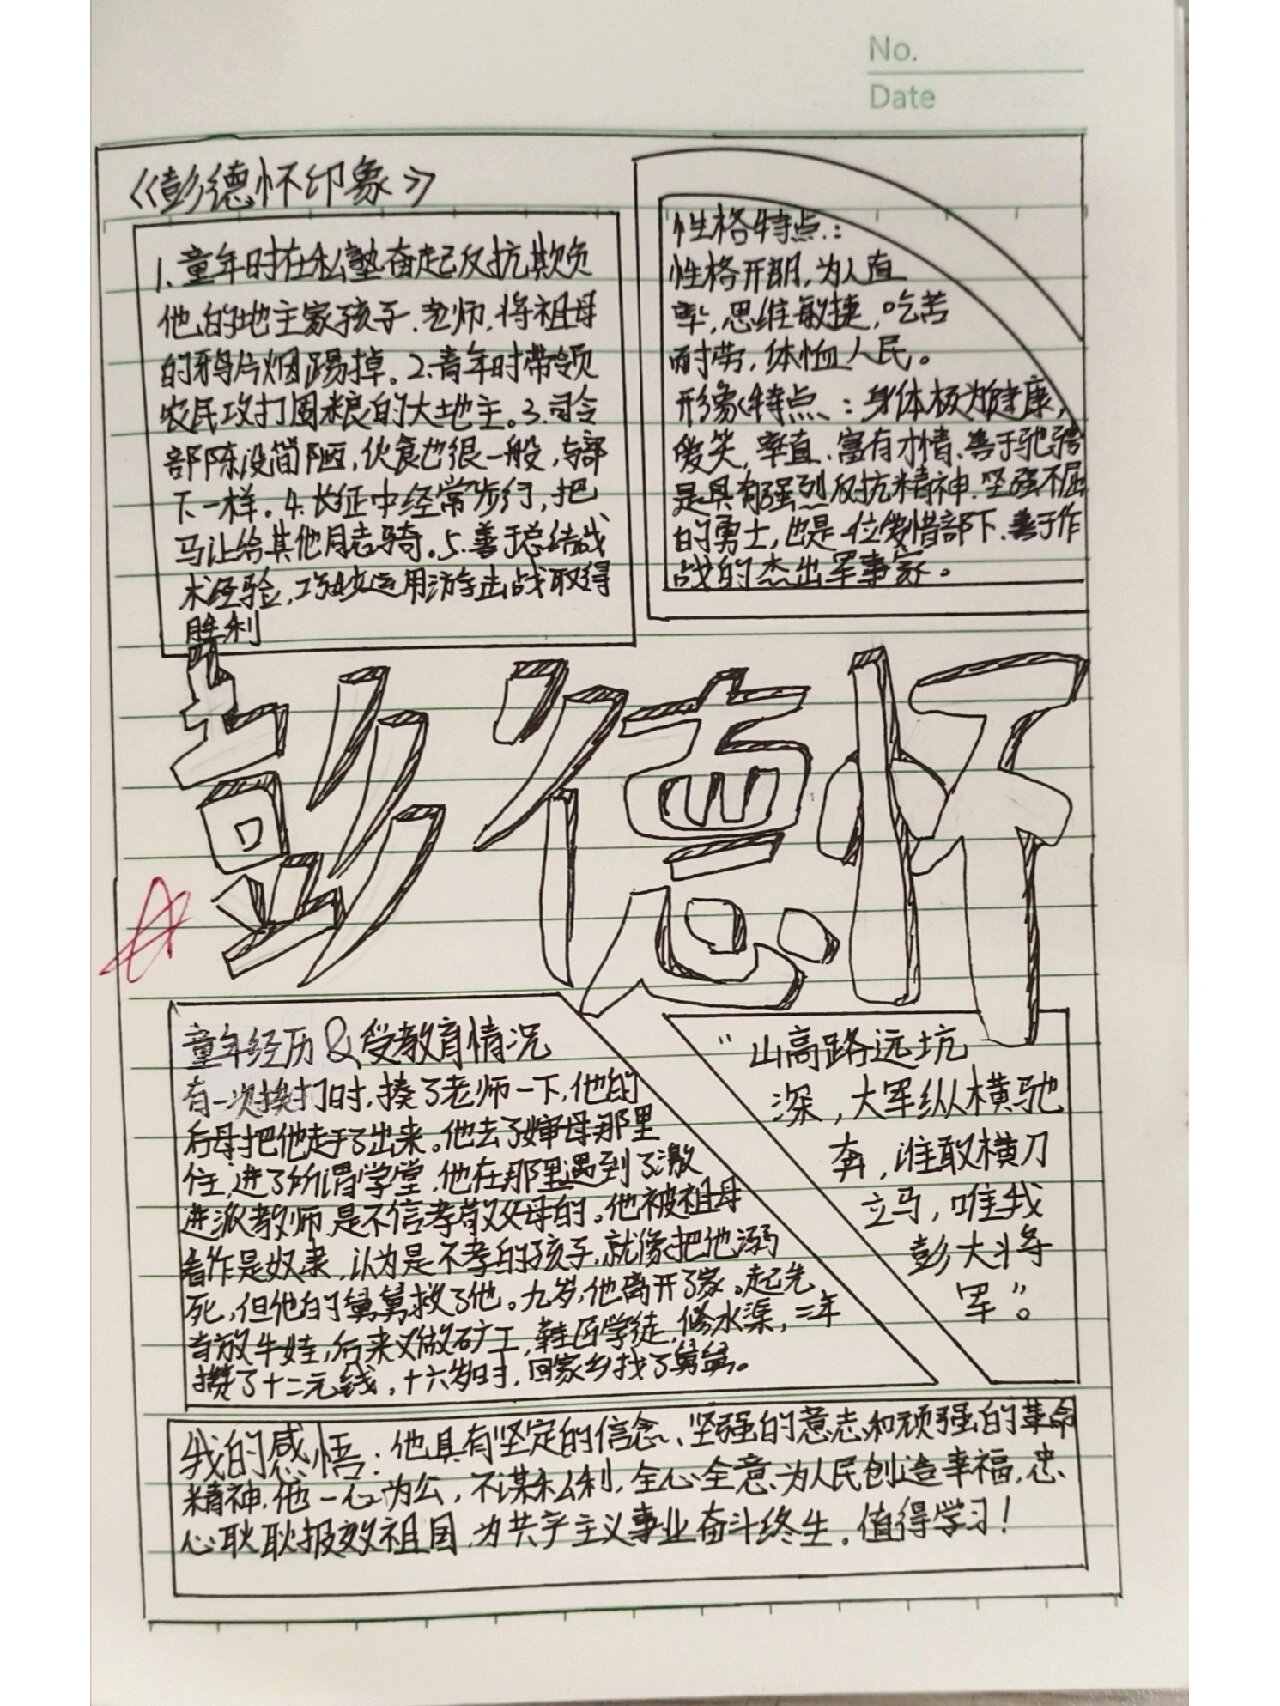 No.
Date
《彭德怀印象》
1.童年时在私塾奋起反抗欺负
他的地主家孩子、老师,将祖母
的鸦片烟踢掉。2.青年时带领
农民攻打囤粮的大地主。3.司令
部陈设简陋,伙食也很一般,与部
下一样。4.长征中经常步行,把
马让给其他同志骑。5.善于总结战
术经验,巧妙运用游击战取得
胜利
性格特点:
性格开朗,为人直
率,思维敏捷,吃苦
耐劳,体恤人民。
形象特点:身体极为健康,
爱笑,率直,富有才情、善于驰骋
是具有强烈反抗精神、坚强不屈
的勇士,也是一位爱惜部下、善于作
战的杰出军事家。
彭德怀
童年经历&受教育情况
有一次挨打时,揍了老师一下,他的
后母把他赶了出来。他去了婶母那里
住,进了所谓学堂,他在那里遇到了激
进派教师,是不信孝敬父母的。他被祖母
看作是奴隶,认为是不孝的孩子,就像把他溺
死,但他的舅舅救了他。九岁,他离开了家。起先
当放牛娃,后来又做矿工,鞋匠学徒,修水渠,三年
攒了十二元钱,十六岁时,回家乡找了舅舅。
“山高路远坑
深,大军纵横驰
奔,谁敢横刀
立马,唯我
彭大将
军”。
我的感悟:他具有坚定的信念、坚强的意志和顽强的革命
精神,他一心为公,不谋私利,全心全意为人民创造幸福,忠
心耿耿报效祖国,为共产主义事业奋斗终生,值得学习!